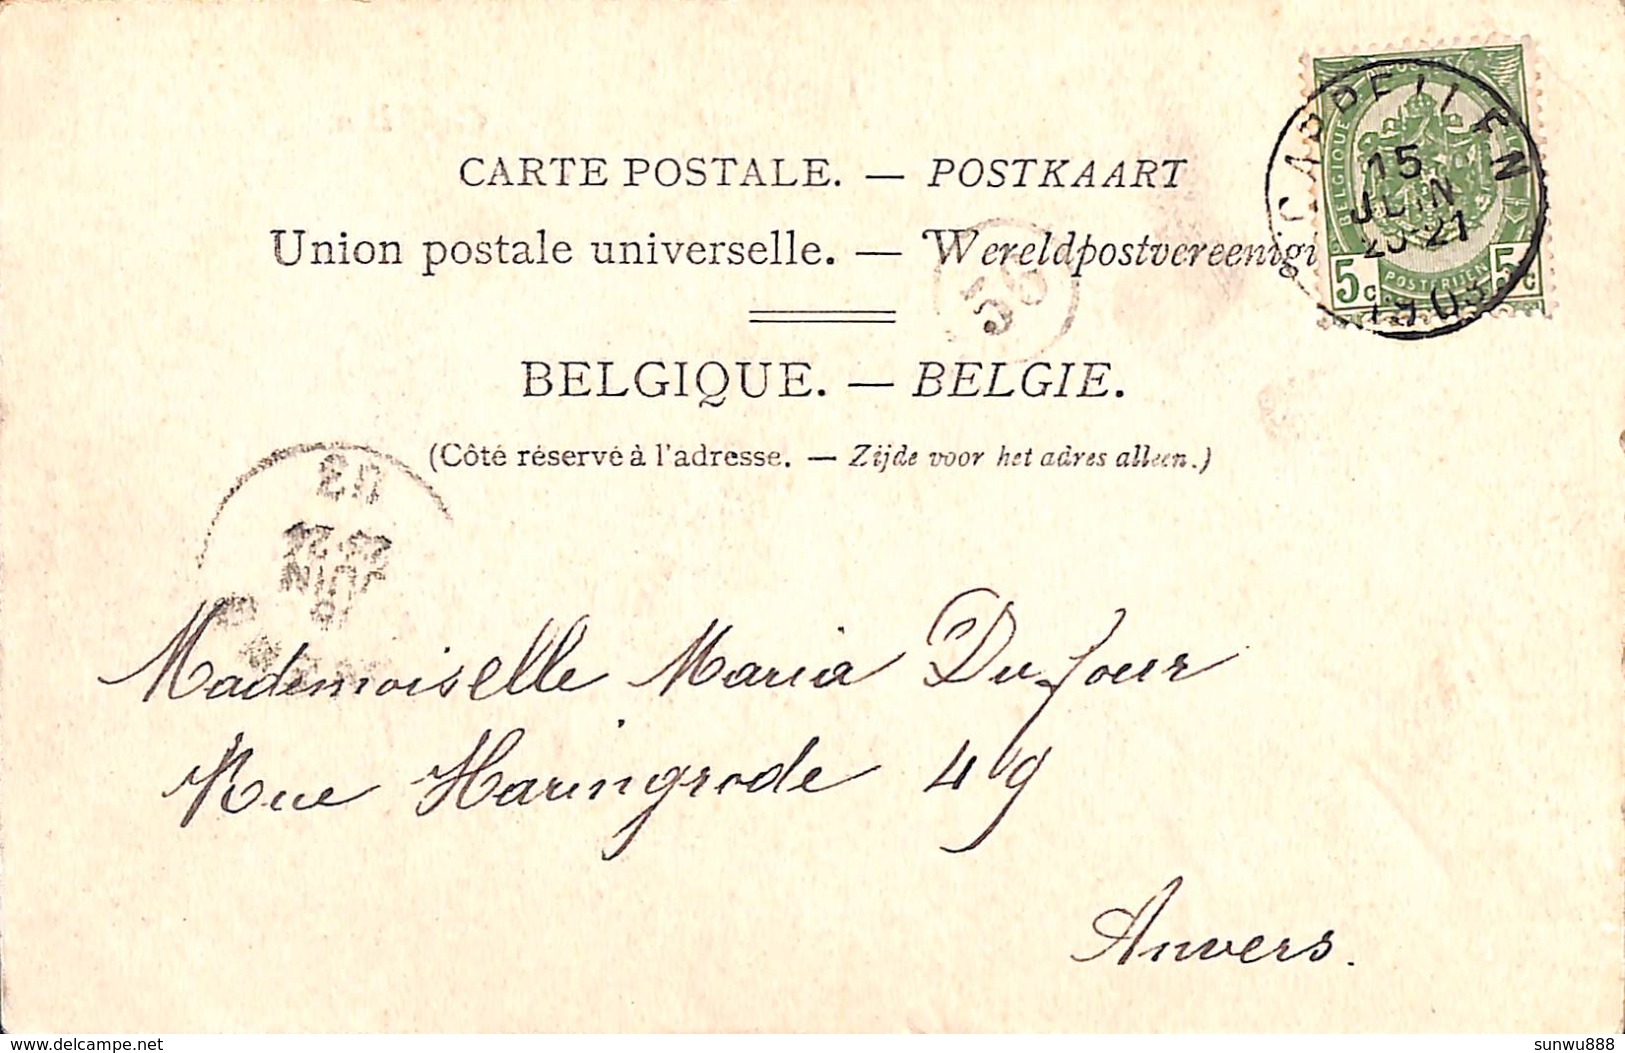 CARTE POSTALE. — POSTKAART
Union postale universelle. — Wereldpostvereenigi
BELGIQUE. — BELGIE.
(Côté réservé à l'adresse. — Zijde voor het adres alleen.)
CAPPELLEN
15
JUIN
20-21
1903
BELGIQUE
POSTERIJEN
5c 5c
56
03
JUIN
Mademoiselle Maria Dufour
Rue Haringrode 49
Anvers.
www.delcampe.net
sunwu888